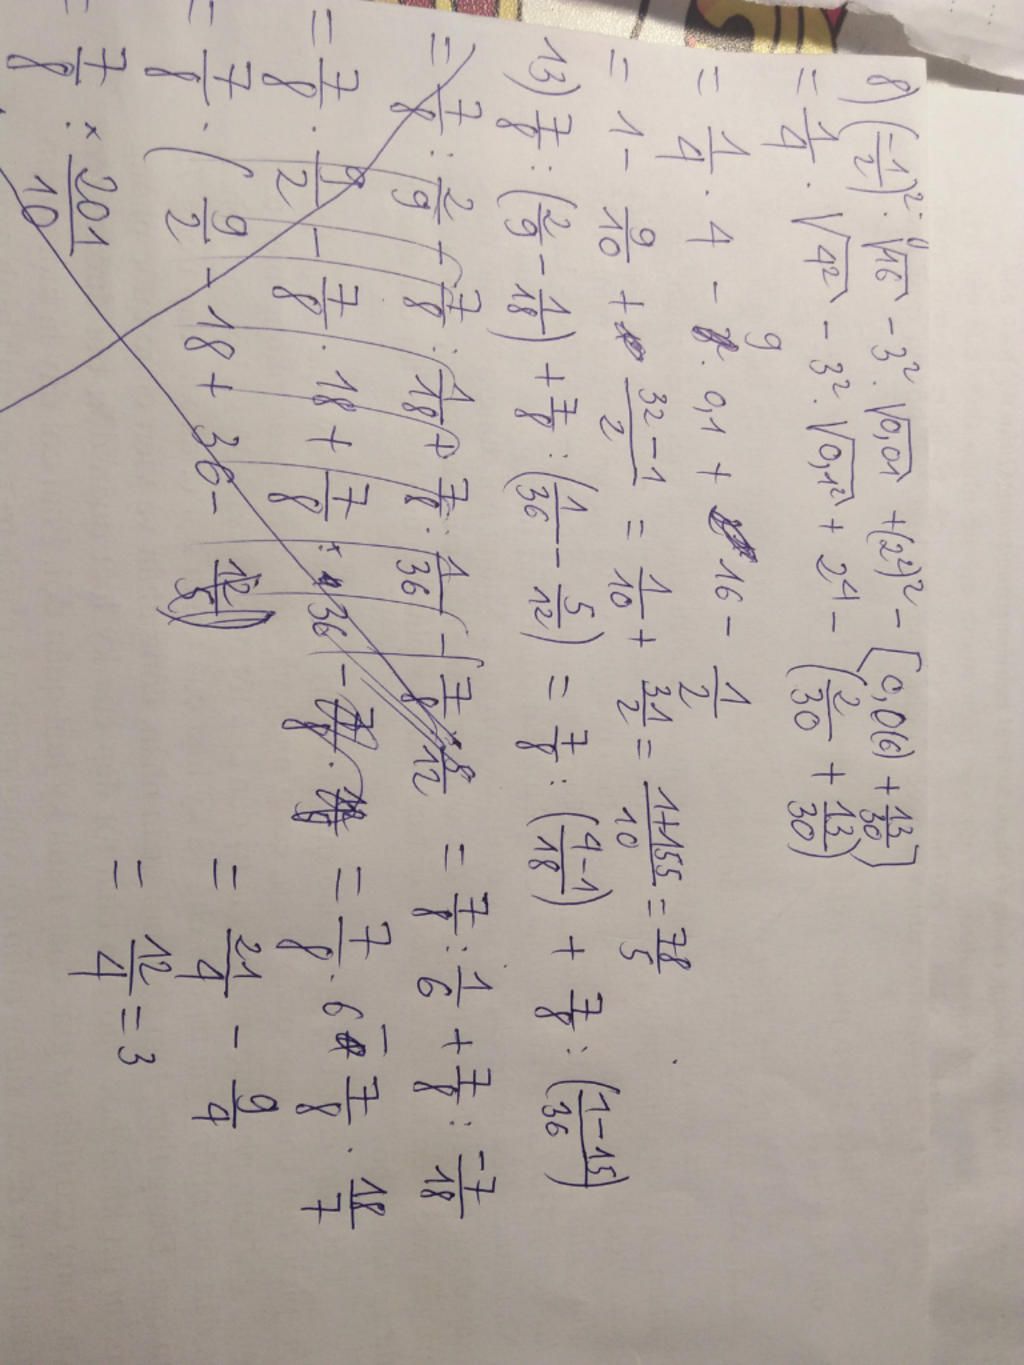 8) (-1/2)²·√16 - 3²·√0,01 + (2²)² - [0,0(6) + 13/30]
= 1/4 · √4² - 3²·√0,1² + 2⁴ - (2/30 + 13/30)
= 1/4 · 4 - 9 · 0,1 + 16 - 1/2
= 1 - 9/10 + (32-1)/2 = 1/10 + 31/2 = (1+155)/10 = 78/5
13) 7/8 : (2/9 - 1/18) + 7/8 : (1/36 - 5/12) = 7/8 : (4-1/18) + 7/8 : (1-15/36)
= 7/8 : 2/9 - 7/8 : 1/18 + 7/8 : 1/36 - 7/8
= 7/8 · 9/2 - 7/8 · 18 + 7/8 · 36 -
= 7/8 · (9/2 - 18 + 36 - 12/5)
= 7/8 · 201/10
= 7/8 : 1/6 + 7/8 : -7/18
= 7/8 · 6 - 7/8 · 18/7
= 21/4 - 9/4
= 12/4 = 3